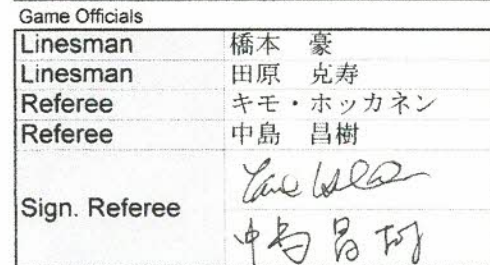 Game Officials
Linesman 橋本　豪
Linesman 田原　克寿
Referee キモ・ホッカネン
Referee 中島　昌樹
Sign. Referee
中島昌樹